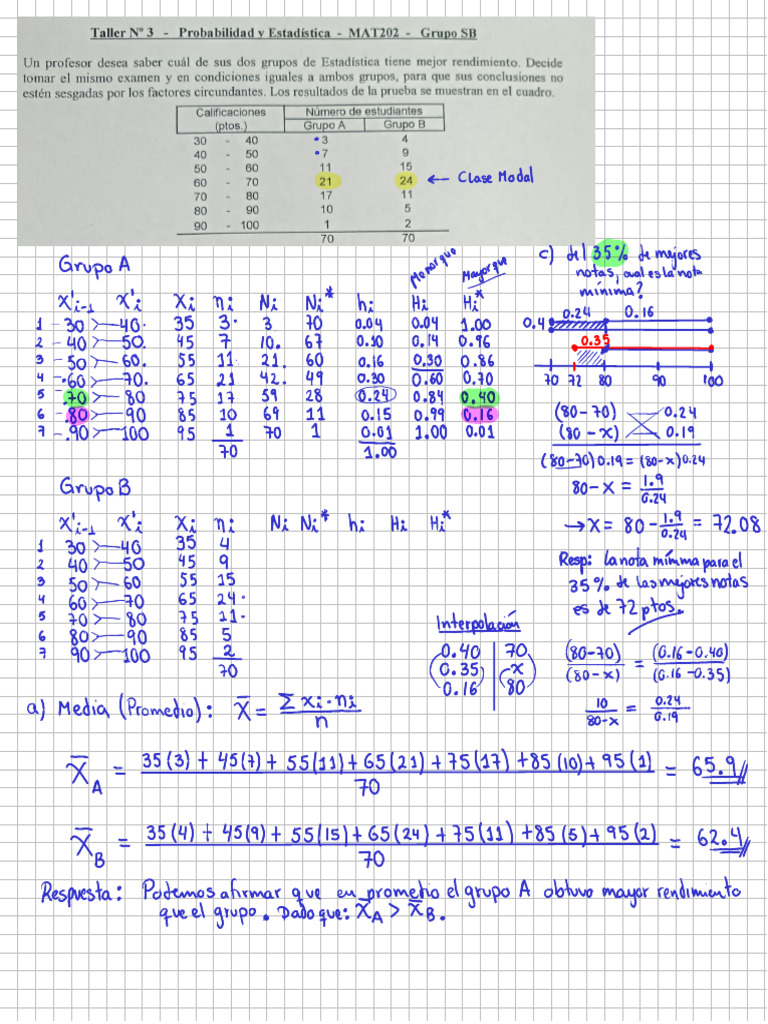 Taller N° 3 - Probabilidad y Estadística - MAT202 - Grupo SB
Un profesor desea saber cuál de sus dos grupos de Estadística tiene mejor rendimiento. Decide
tomar el mismo examen y en condiciones iguales a ambos grupos, para que sus conclusiones no
estén sesgadas por los factores circundantes. Los resultados de la prueba se muestran en el cuadro.
Calificaciones (ptos.) Número de estudiantes
Grupo A Grupo B
30 - 40 3 4
40 - 50 7 9
50 - 60 11 15
60 - 70 21 24 ← Clase Modal
70 - 80 17 11
80 - 90 10 5
90 - 100 1 2
70 70
Grupo A
Menor que Mayor que
X'i-1 X'i Xi ni Ni Ni* hi Hi Hi*
1 - 30 40 35 3 3 70 0.04 0.04 1.00
2 - 40 50 45 7 10 67 0.10 0.14 0.96
3 - 50 60 55 11 21 60 0.16 0.30 0.86
4 - 60 70 65 21 42 49 0.30 0.60 0.70
5 - 70 80 75 17 59 28 0.24 0.84 0.40
6 - 80 90 85 10 69 11 0.15 0.99 0.16
7 - 90 100 95 1 70 1 0.01 1.00 0.01
70 1.00
c) del 35% de mejores
notas, cual es la nota
mínima?
0.24 0.16
0.4
0.35
70 72 80 90 100
(80-70) 0.24
(80-x) 0.19
(80-70)0.19=(80-x)0.24
80-x = 1.9/0.24
→ x = 80 - 1.9/0.24 = 72.08
Resp: la nota mínma para el
35% de las mejores notas
es de 72 ptos.
Grupo B
X'i-1 X'i Xi ni Ni Ni* hi Hi Hi*
1 30 40 35 4
2 40 50 45 9
3 50 60 55 15
4 60 70 65 24
5 70 80 75 11
6 80 90 85 5
7 90 100 95 2
70
Interpolación
0.40 70
0.35 x
0.16 80
(80-70)/(80-x) = (0.16-0.40)/(0.16-0.35)
10/80-x = 0.24/0.19
a) Media (Promedio): X̄ = Σ xi·ni / n
X̄A = 35(3) + 45(7) + 55(11) + 65(21) + 75(17) + 85(10) + 95(1) / 70 = 65.9
X̄B = 35(4) + 45(9) + 55(15) + 65(24) + 75(11) + 85(5) + 95(2) / 70 = 62.4
Respuesta: Podemos afirmar que en promedio el grupo A obtuvo mayor rendimiento
que el grupo. Dado que: X̄A > X̄B.